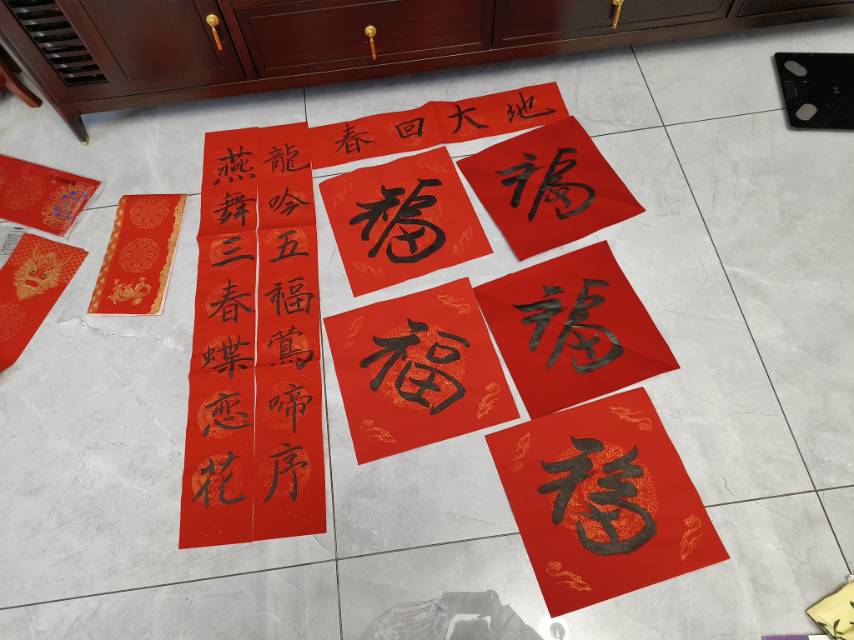 春回大地
龍吟五福鶯啼序
燕舞三春蝶恋花
福
福
福
福
福